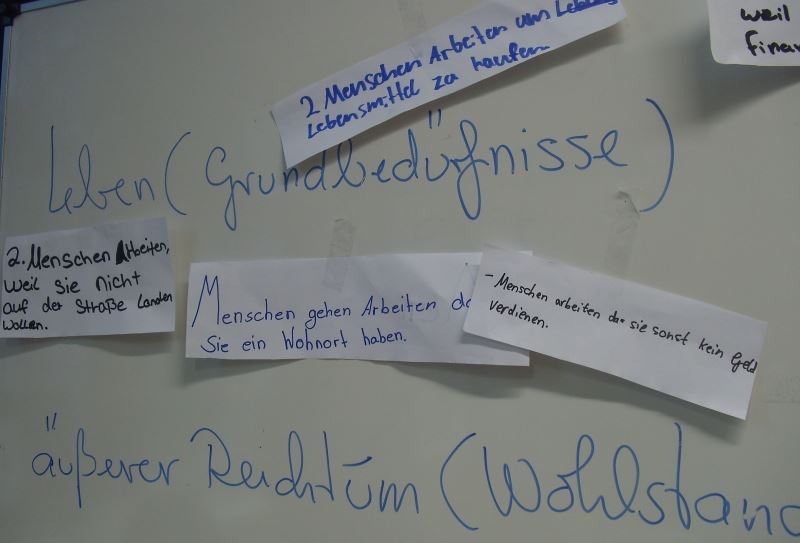 2 Menschen Arbeiten um
Lebensmittel zu kaufen
weil
finan
Leben (Grundbedürfnisse)
2. Menschen Arbeiten,
weil sie nicht
auf der Straße landen
wollen.
Menschen gehen Arbeiten da
Sie ein Wohnort haben.
- Menschen arbeiten da sie sonst kein Geld
verdienen.
äußerer Reichtum (Wohlstand